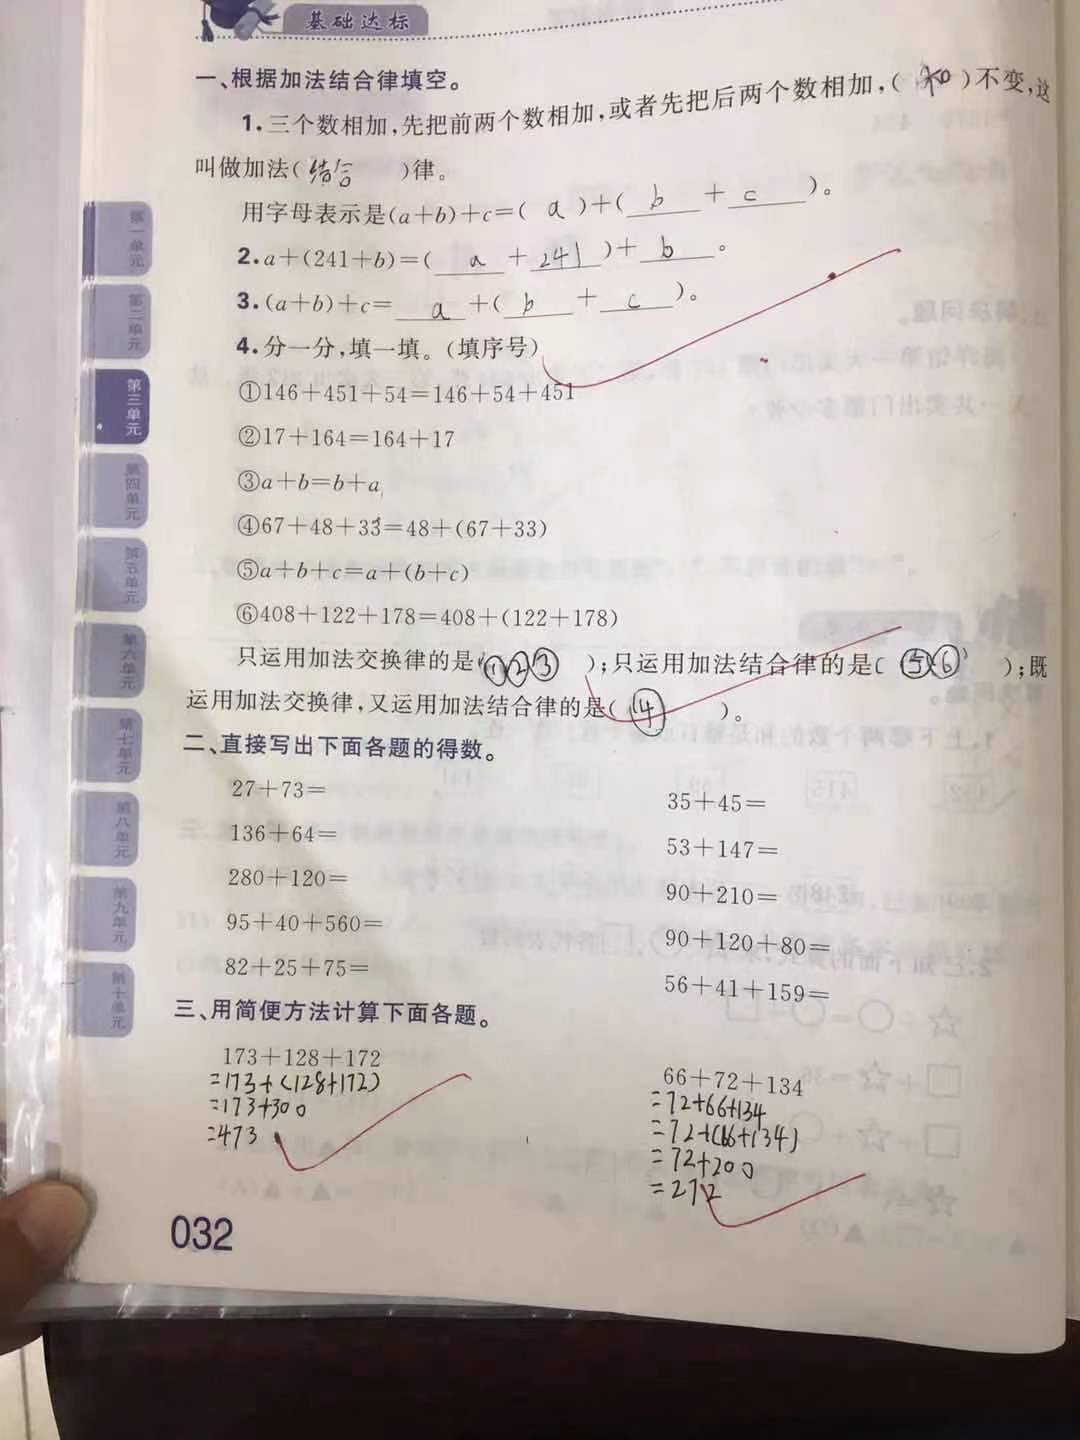 基础达标
一、根据加法结合律填空。
1.三个数相加,先把前两个数相加,或者先把后两个数相加,(和)不变,这
叫做加法(结合)律。
用字母表示是(a+b)+c=(a)+(b+c)。
2.a+(241+b)=(a+241)+b。
3.(a+b)+c=a+(b+c)。
4.分一分,填一填。(填序号)
①146+451+54=146+54+451
②17+164=164+17
③a+b=b+a
④67+48+33=48+(67+33)
⑤a+b+c=a+(b+c)
⑥408+122+178=408+(122+178)
只运用加法交换律的是(①②③);只运用加法结合律的是(⑤⑥);既
运用加法交换律,又运用加法结合律的是(④)。
二、直接写出下面各题的得数。
27+73=
35+45=
136+64=
53+147=
280+120=
90+210=
95+40+560=
90+120+80=
82+25+75=
56+41+159=
三、用简便方法计算下面各题。
173+128+172
=173+(128+172)
=173+300
=473
66+72+134
=72+66+134
=72+(66+134)
=72+200
=272
032
第一单元
第二单元
第三单元
第四单元
第五单元
第六单元
第七单元
第八单元
第九单元
第十单元